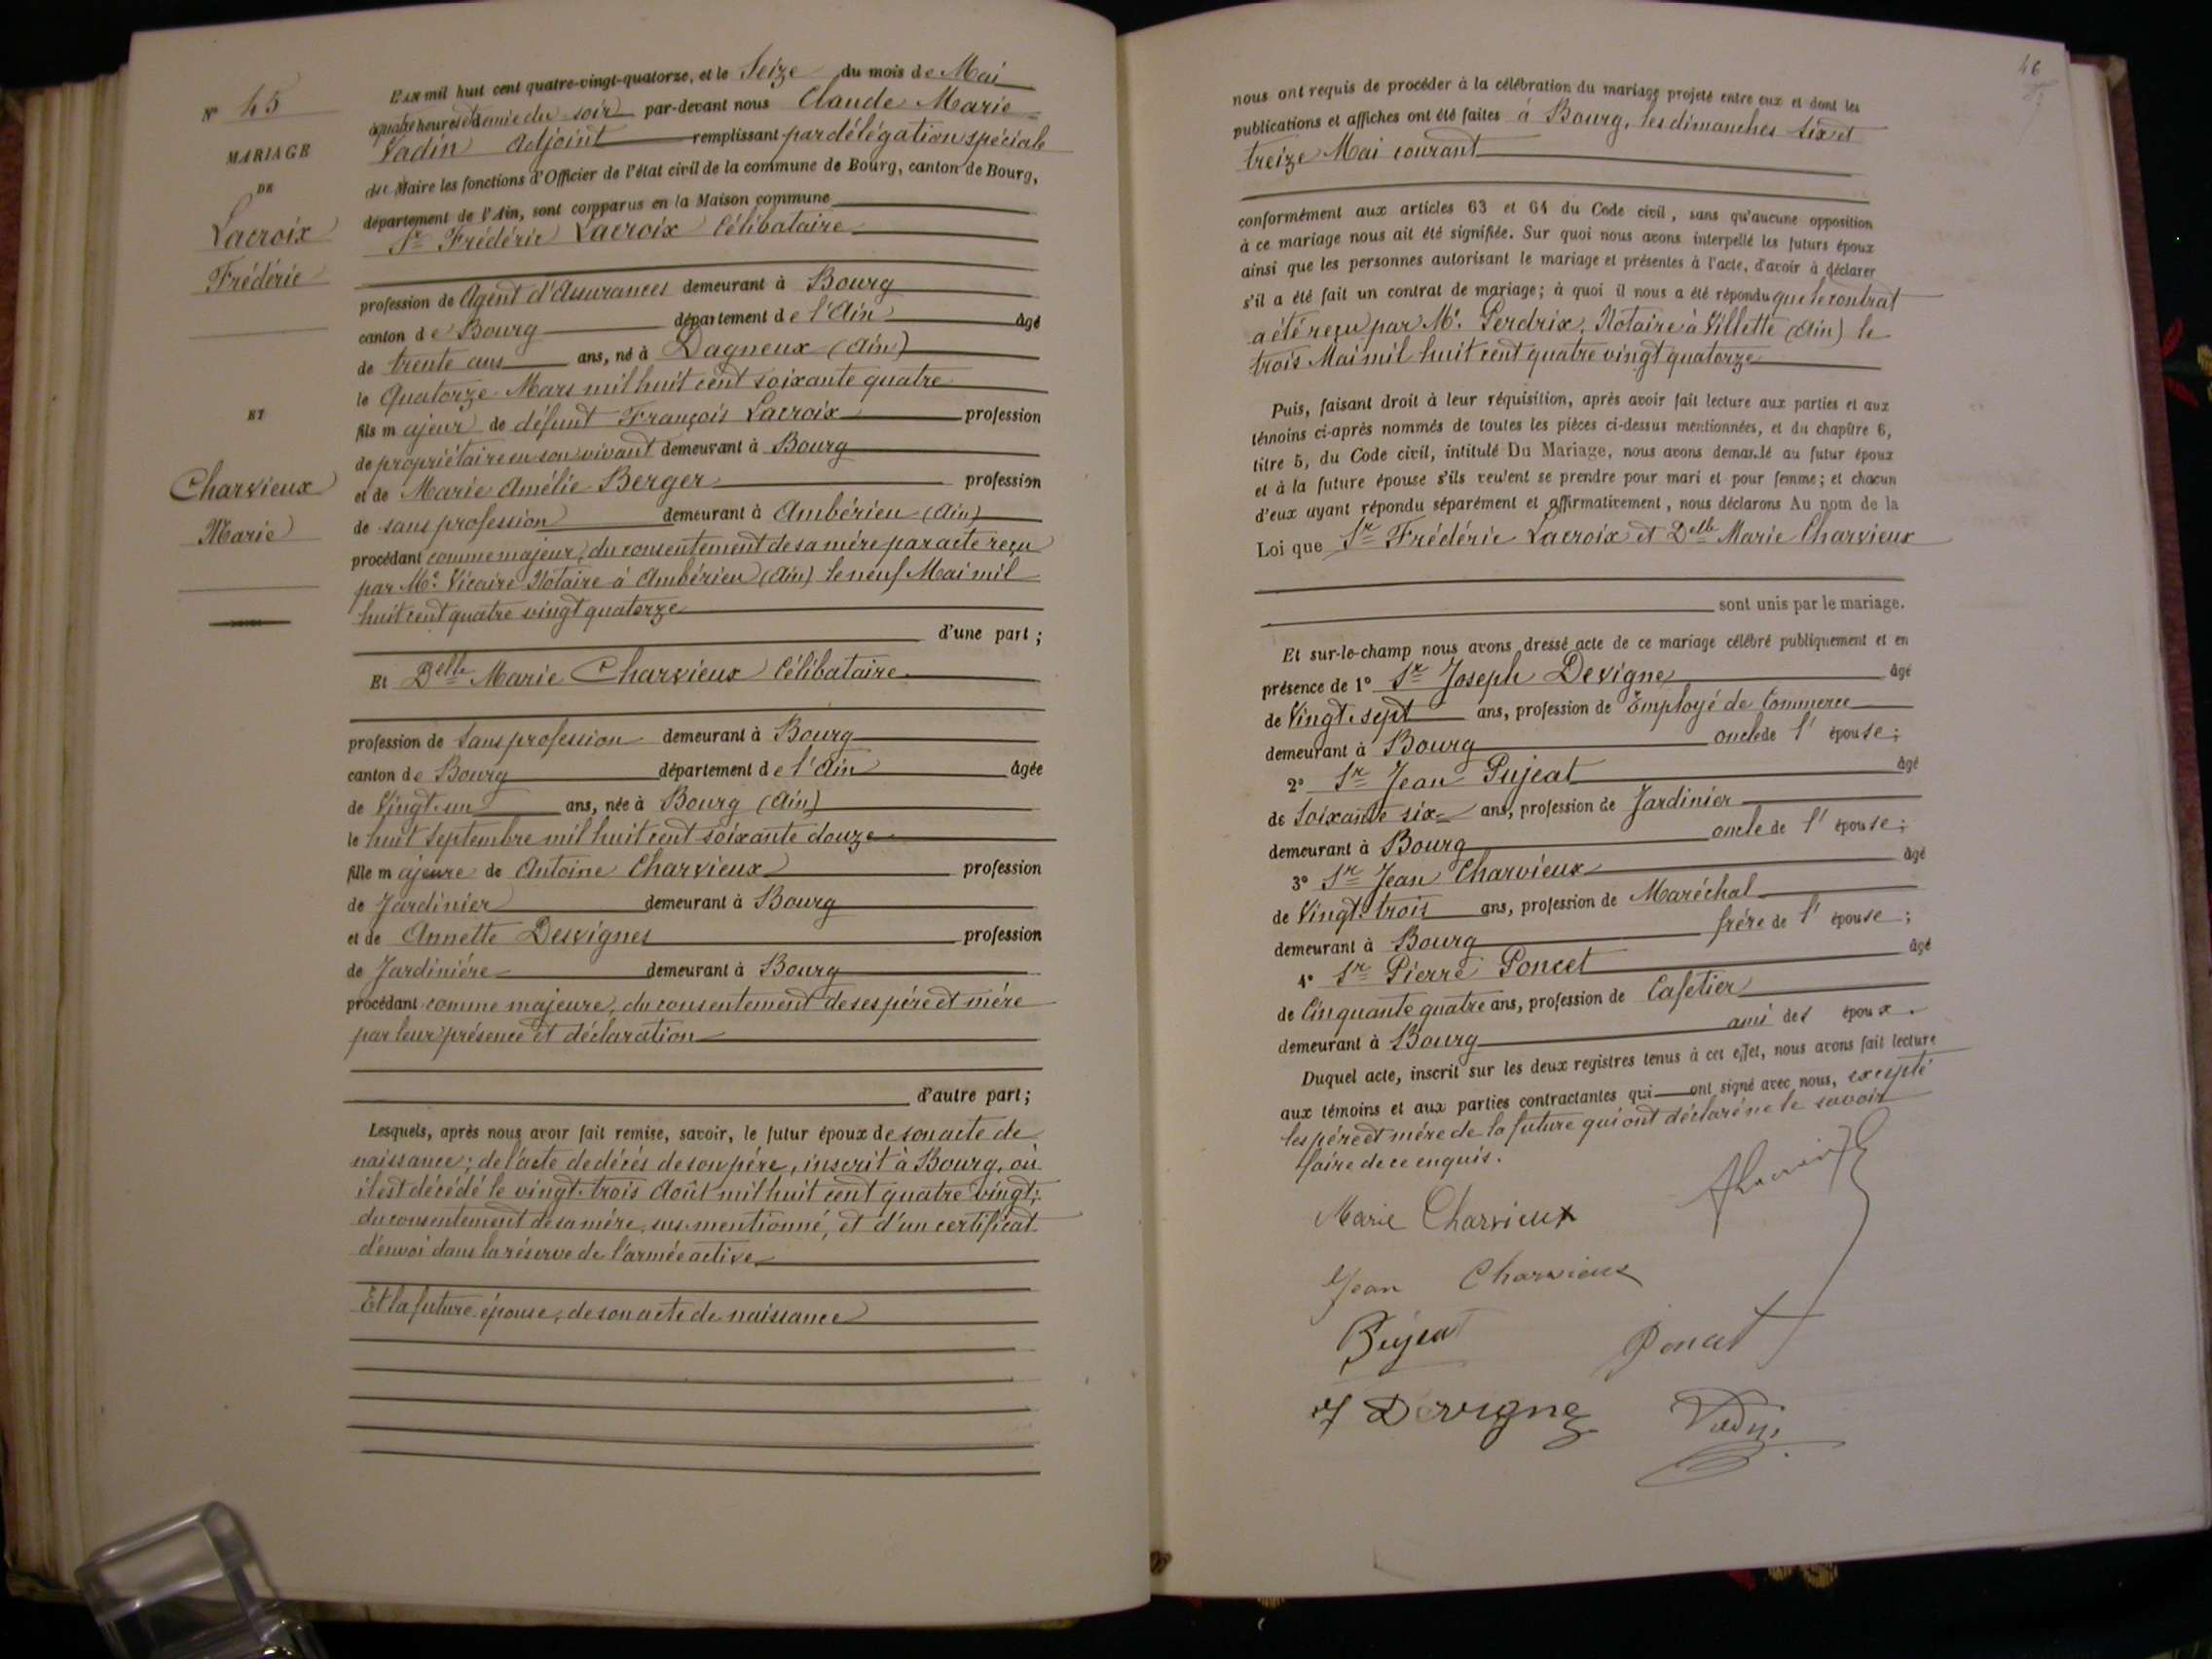 N° 45
MARIAGE
DE
Lacroix
Frédéric
ET
Charvieux
Marie
L'an mil huit cent quatre-vingt-quatorze, et le Seize du mois de Mai
à quatre heures et demie du soir par-devant nous Claude Marie
Vadin Adjoint remplissant par délégation spéciale
du Maire les fonctions d'Officier de l'état civil de la commune de Bourg, canton de Bourg,
département de l'Ain, sont comparus en la Maison commune
Sr Frédéric Lacroix Célibataire
profession de Agent d'Assurances demeurant à Bourg
canton de Bourg département de l'Ain âgé
de trente ans ans, né à Dagneux (Ain)
le Quatorze Mars mil huit cent soixante quatre
fils majeur de défunt François Lacroix profession
de propriétaire en son vivant demeurant à Bourg
et de Marie Amélie Berger profession
de sans profession demeurant à Ambérieu (Ain)
procédant comme majeur, du consentement de sa mère par acte reçu
par Me Vicaire Notaire à Ambérieu (Ain) le neuf Mai mil
huit cent quatre vingt quatorze
d'une part ;
Et Delle Marie Charvieux Célibataire
profession de Sans profession demeurant à Bourg
canton de Bourg département de l'Ain âgée
de Vingt-un ans, née à Bourg (Ain)
le huit Septembre mil huit cent soixante douze
fille majeure de Antoine Charvieux profession
de Jardinier demeurant à Bourg
et de Annette Desvignes profession
de Jardinière demeurant à Bourg
procédant comme majeure, du consentement de ses père et mère
par leur présence et déclaration
d'autre part ;
Lesquels, après nous avoir fait remise, savoir, le futur époux de son acte de
naissance ; de l'acte de décès de son père, inscrit à Bourg, où
il est décédé le vingt-trois Août mil huit cent quatre vingt ;
du consentement de sa mère, sus-mentionné, et d'un certificat
d'envoi dans la réserve de l'armée active
Et la future épouse, de son acte de naissance
46
nous ont requis de procéder à la célébration du mariage projeté entre eux et dont les
publications et affiches ont été faites à Bourg, les dimanches six et
treize Mai courant
conformément aux articles 63 et 64 du Code civil, sans qu'aucune opposition
à ce mariage nous ait été signifiée. Sur quoi nous avons interpellé les futurs époux
ainsi que les personnes autorisant le mariage et présentes à l'acte, d'avoir à déclarer
s'il a été fait un contrat de mariage ; à quoi il nous a été répondu que le contrat
a été reçu par Me Perdrix, Notaire à Villette (Ain) le
trois Mai mil huit cent quatre vingt quatorze
Puis, faisant droit à leur réquisition, après avoir fait lecture aux parties et aux
témoins ci-après nommés de toutes les pièces ci-dessus mentionnées, et du chapitre 6,
titre 5, du Code civil, intitulé Du Mariage, nous avons demandé au futur époux
et à la future épouse s'ils veulent se prendre pour mari et pour femme ; et chacun
d'eux ayant répondu séparément et affirmativement, nous déclarons Au nom de la
Loi que Sr Frédéric Lacroix et Delle Marie Charvieux
sont unis par le mariage.
Et sur-le-champ nous avons dressé acte de ce mariage célébré publiquement et en
présence de 1° Sr Joseph Devigne âgé
de Vingt-sept ans, profession de Employé de Commerce
demeurant à Bourg oncle de l'épouse ;
2° Sr Jean Pujeat âgé
de Soixante six ans, profession de Jardinier
demeurant à Bourg oncle de l'épouse ;
3° Sr Jean Charvieux âgé
de Vingt-trois ans, profession de Maréchal
demeurant à Bourg frère de l'épouse ;
4° Sr Pierre Poncet âgé
de Cinquante quatre ans, profession de Cafetier
demeurant à Bourg ami des époux.
Duquel acte, inscrit sur les deux registres tenus à cet effet, nous avons fait lecture
aux témoins et aux parties contractantes qui ont signé avec nous, excepté
les père et mère de la future qui ont déclaré ne le savoir
faire de ce enquis.
Marie Charvieux
Jean Charvieux
Pujeat Poncet
J Devigne Vadin